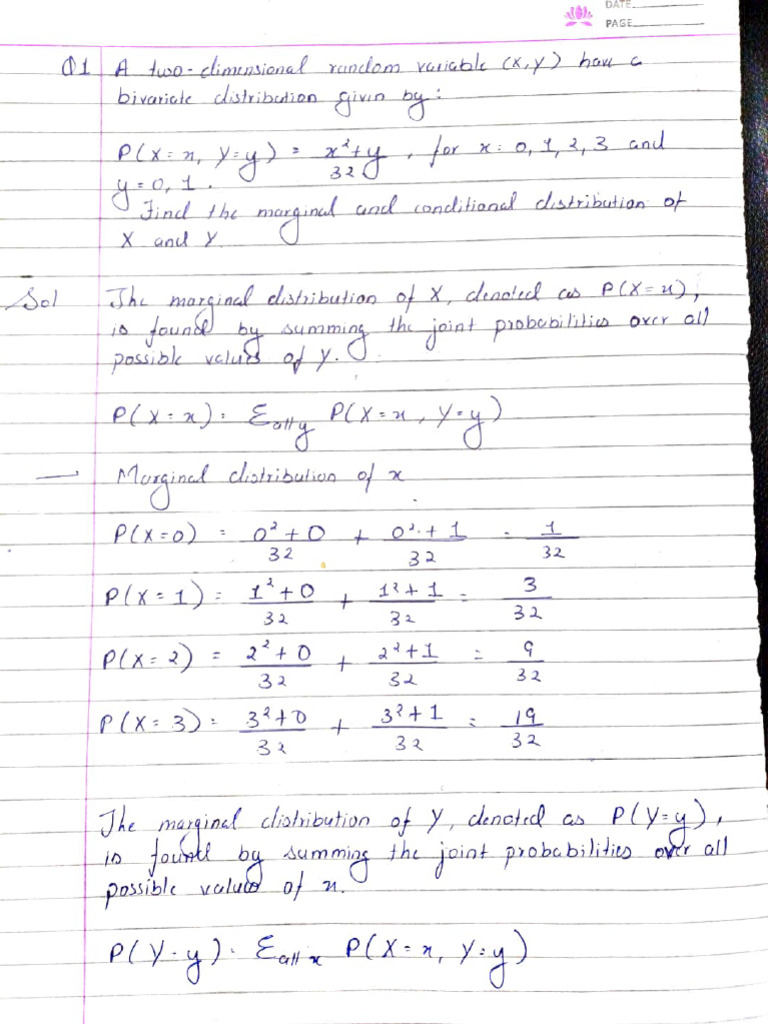 DATE
PAGE
Q1 A two-dimensional random variable (X,Y) have a
bivariate distribution given by:
P(X=x, Y=y) = x²+y/32, for x=0,1,2,3 and
y=0,1.
Find the marginal and conditional distribution of
X and Y.
Sol The marginal distribution of X, denoted as P(X=x),
is found by summing the joint probabilities over all
possible values of y.
P(X=x) = Σall y P(X=x, Y=y)
— Marginal distribution of x
P(X=0) = 0²+0/32 + 0²+1/32 = 1/32
P(X=1) = 1²+0/32 + 1²+1/32 = 3/32
P(X=2) = 2²+0/32 + 2²+1/32 = 9/32
P(X=3) = 3²+0/32 + 3²+1/32 = 19/32
The marginal distribution of Y, denoted as P(Y=y),
is found by summing the joint probabilities over all
possible values of x.
P(Y=y) = Σall x P(X=x, Y=y)